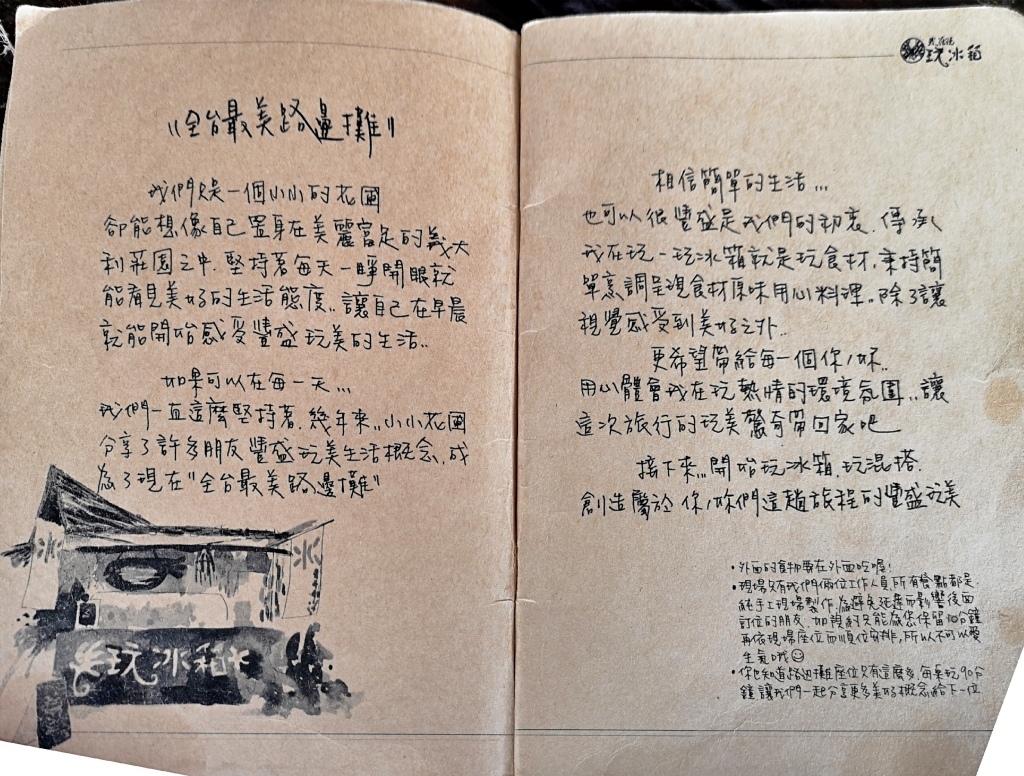 "全台最美路邊攤"
我們只是一個小小的花園
卻能想像自己置身在美麗富足的義大
利莊園之中.堅持著每天一睜開眼就
能看見美好的生活態度..讓自己在早晨
就能開始感受豐盛玩美的生活..
如果可以在每一天...
我們一直這麼堅持著.幾年來..小小花園
分享了許多朋友豐盛玩美生活概念.成
為了現在"全台最美路邊攤"
冰
冰
玩冰箱
我在玩
玩冰箱
相信簡單的生活...
也可以很豐盛是我們的初衷.傳承
我在玩-玩冰箱就是玩食材.秉持簡
單烹調呈現食材原味用心料理..除了讓
視覺感受到美好之外..
更希望帶給每一個你/妳..
用心體會我在玩熱情的環境氛圍..讓
這次旅行的玩美驚奇帶回家吧
接下來..開始玩冰箱.玩混搭.
創造屬於你/妳們這趟旅程的豐盛玩美
•外面的食物要在外面吃喔!
•現場只有我們倆位工作人員,所有餐點都是
純手工現場製作,為避免延遲而影響後面
訂位的朋友.如預約只能為您保留10分鐘
再依現場座位而順位安排,所以不可以愛
生氣哦☺
•你也知道路邊攤座位只有這麼多,每桌玩90分
鐘讓我們一起分享更多美好概念給下一位